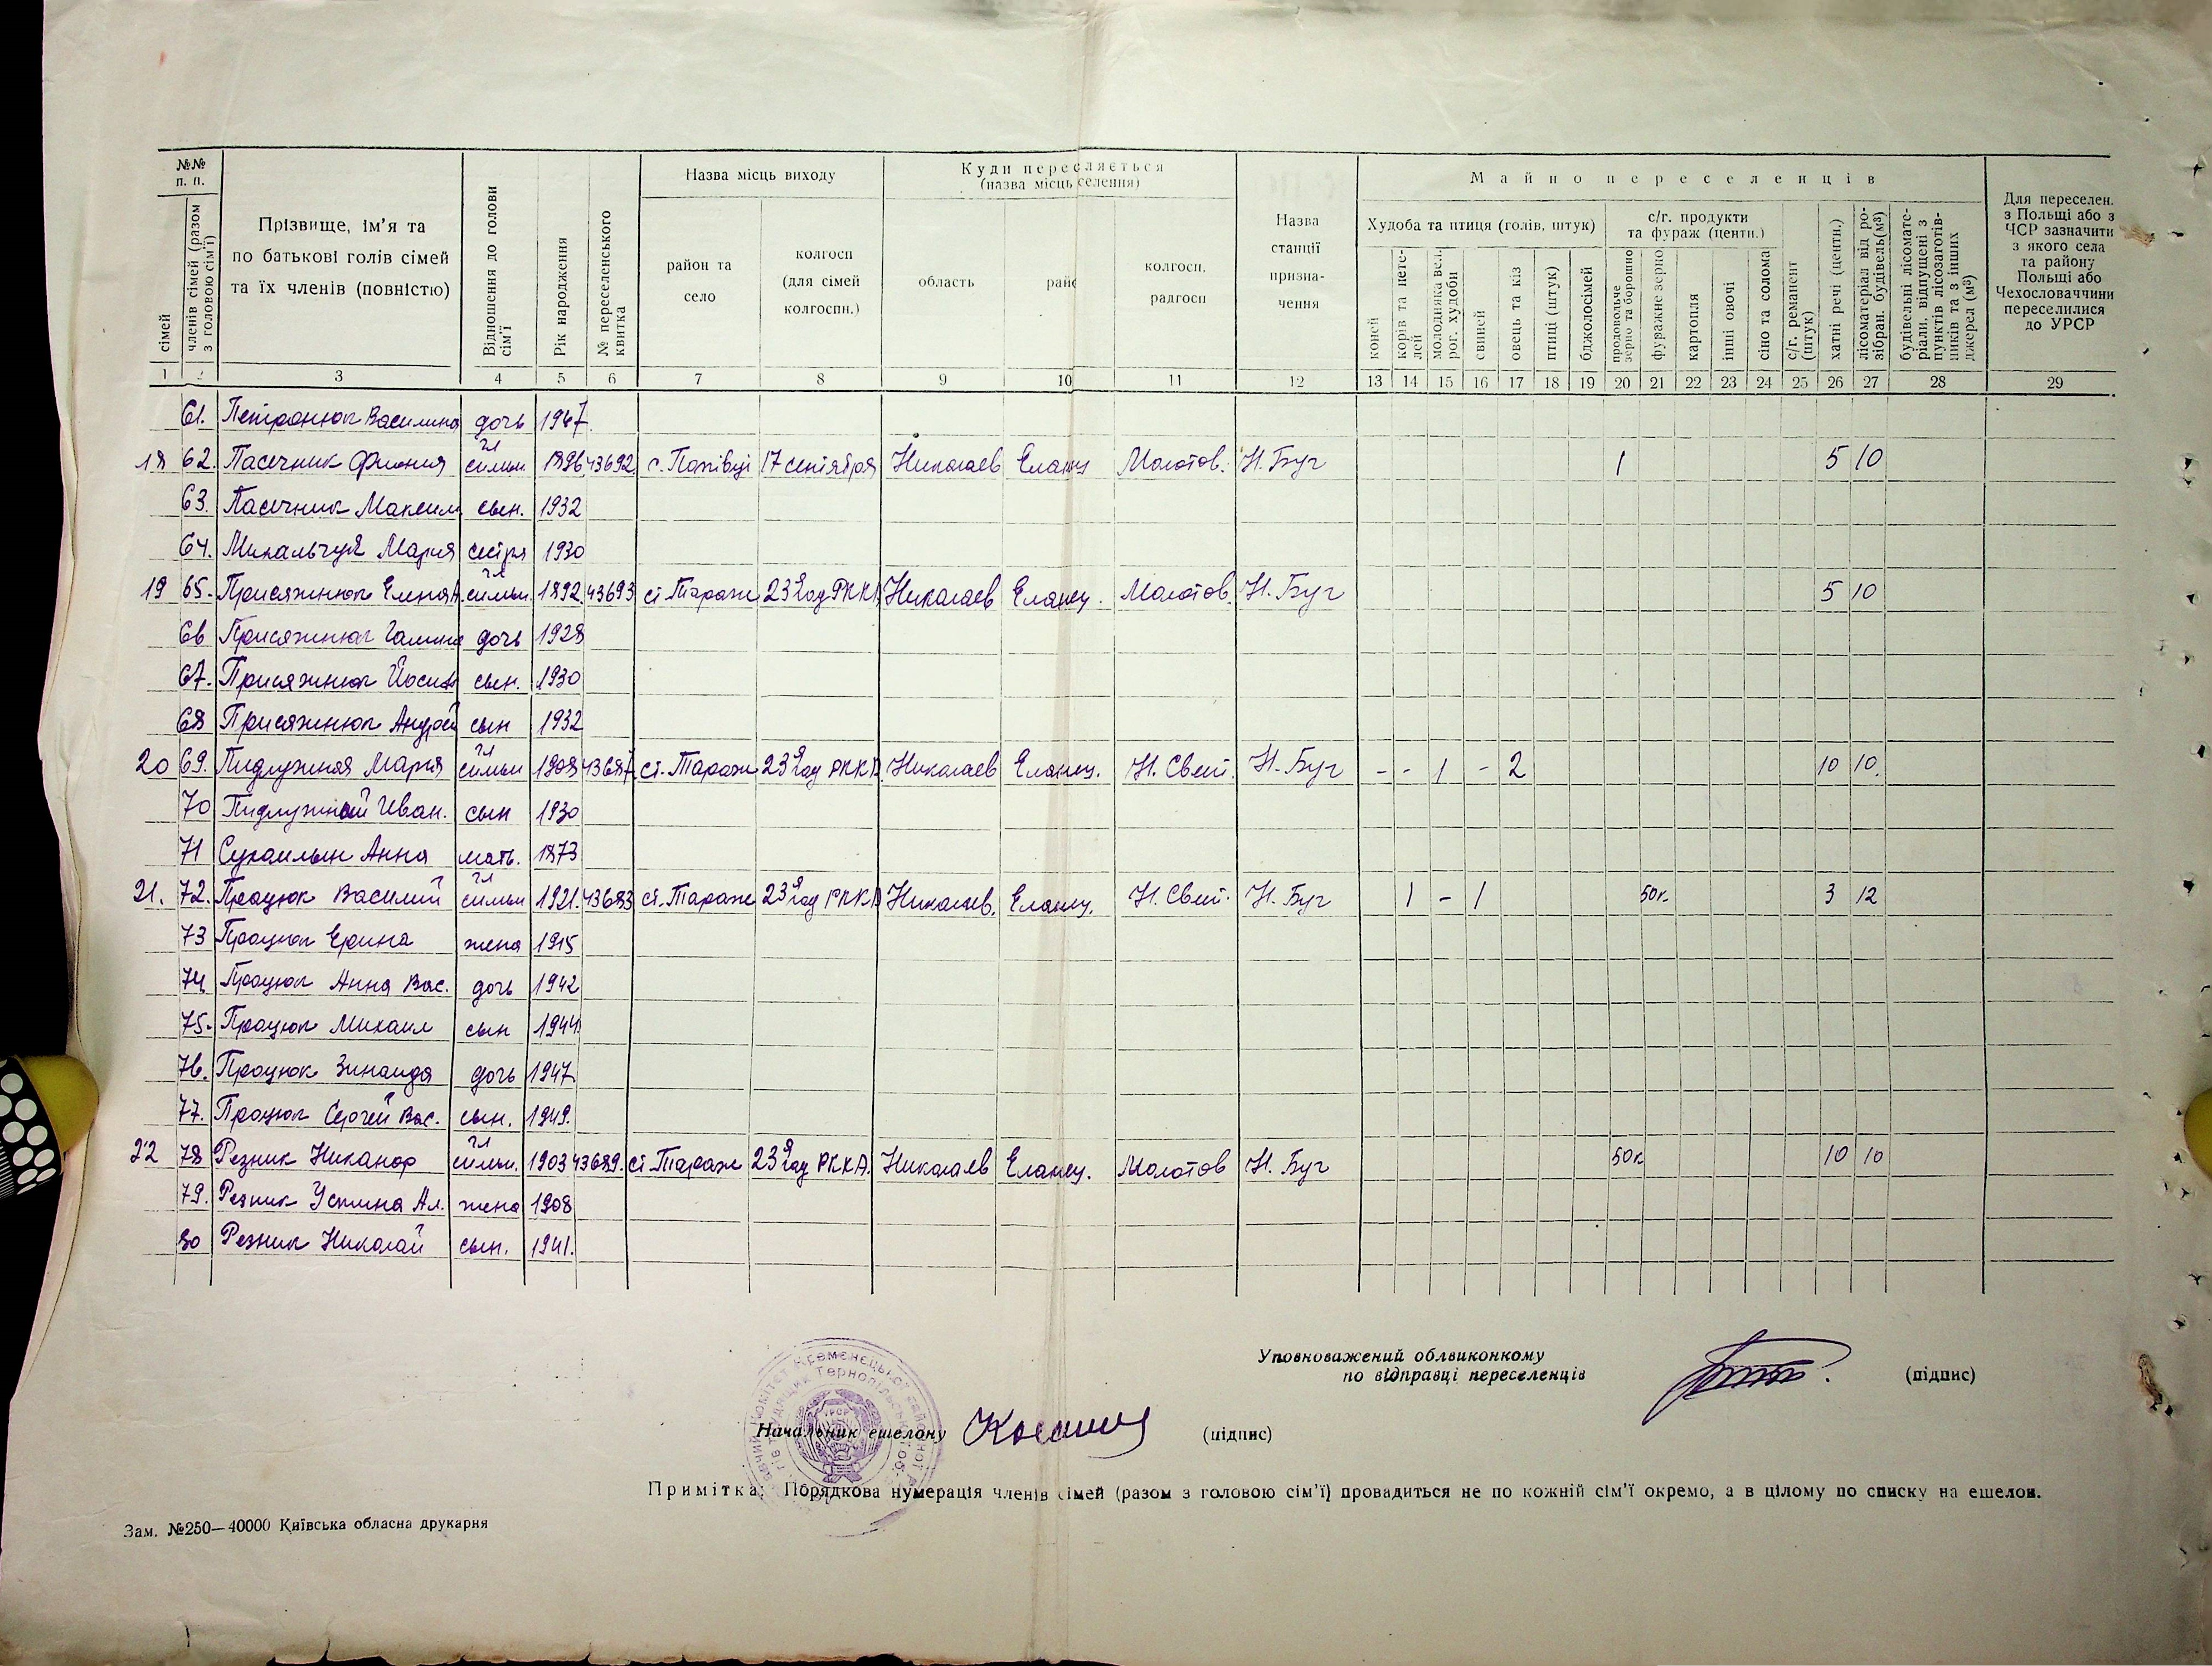 №№ п. п.
сімей
членів сімей (разом з головою сім'ї)
Прізвище, ім'я та по батькові голів сімей та їх членів (повністю)
Відношення до голови сім'ї
Рік народження
№ переселенського квитка
Назва місць виходу
район та село
колгосп (для сімей колгоспн.)
Куди пересляється (назва місць селення)
область
райо
колгосп, радгосп
Назва станції призна- чення
Майно переселенців
Худоба та птиця (голів, штук)
коней
корів та нете- лей
молодняка вел. рог. худоби
свиней
овець та кіз
птиці (штук)
бджолосімей
с/г. продукти та фураж (центн.)
продовольче зерно та борошно
фуражне зерно
картопля
інші овочі
сіно та солома
с/г. реманент (штук)
хатні речі (центн.)
лісоматеріал від ро- зібран. будівель(м³)
будівельні лісомате- ріали, відпущені з пунктів лісозаготів- ників та з інших джерел (м³)
Для переселен. з Польщі або з ЧСР зазначити з якого села та району Польщі або Чехословаччини переселилися до УРСР
1 2 3 4 5 6 7 8 9 10 11 12 13 14 15 16 17 18 19 20 21 22 23 24 25 26 27 28 29
61. Петронюк Василина дочь 1947.
18 62. Пасечник Фиония гл семьи 1896 43692 17 сентября Николаев Еланец Молотов. Н. Буг 1 5 10
63. Пасечник Максим сын. 1932
64. Михальчук Мария сестра 1930
19 65. Присяжнюк Елена гл семьи. 1892. 43693 ст. Тараж 23 год РККА Николаев Еланец. Молотов. Н. Буг 5 10
66 Присяжнюк Галина дочь 1928
67. Присяжнюк Йосип сын. 1930
68 Присяжнюк Андрей сын 1932
20 69. Пидлужная Мария гл семьи 1908 43687 ст. Тараж 23 год РККА Николаев Еланец. Н. Свет. Н. Буг - - 1 - 2 10 10.
70 Пидлужный Иван. сын 1930
71 Анна мать. 1873
21. 72. Процюк Василий гл семьи 1921. 43683 ст. Тараж 23 год РККА Николаев. Еланец. Н. Свет. Н. Буг 1 - 1 50к 3 12
73 Процюк Ерина жена 1915
74 Процюк Анна Вас. дочь 1942
75. Процюк Михаил сын 1944
76. Процюк Зинаида дочь 1947
77. Процюк Сергей Вас. сын. 1949.
22 78 Резник Никанор гл семьи. 1903 43689. ст. Тараж 23 год РККА. Николаев Еланец. Молотов Н. Буг 50к 10 10
79. Резник Устина Ал. жена 1908
80 Резник Николай сын. 1941.
Уповноважений облвиконкому
по відправці переселенців (підпис)
Начальник ешелону (підпис)
Примітка: Порядкова нумерація членів сімей (разом з головою сім'ї) провадиться не по кожній сім'ї окремо, а в цілому по списку на ешелон.
Зам. №250—40000 Київська обласна друкарня